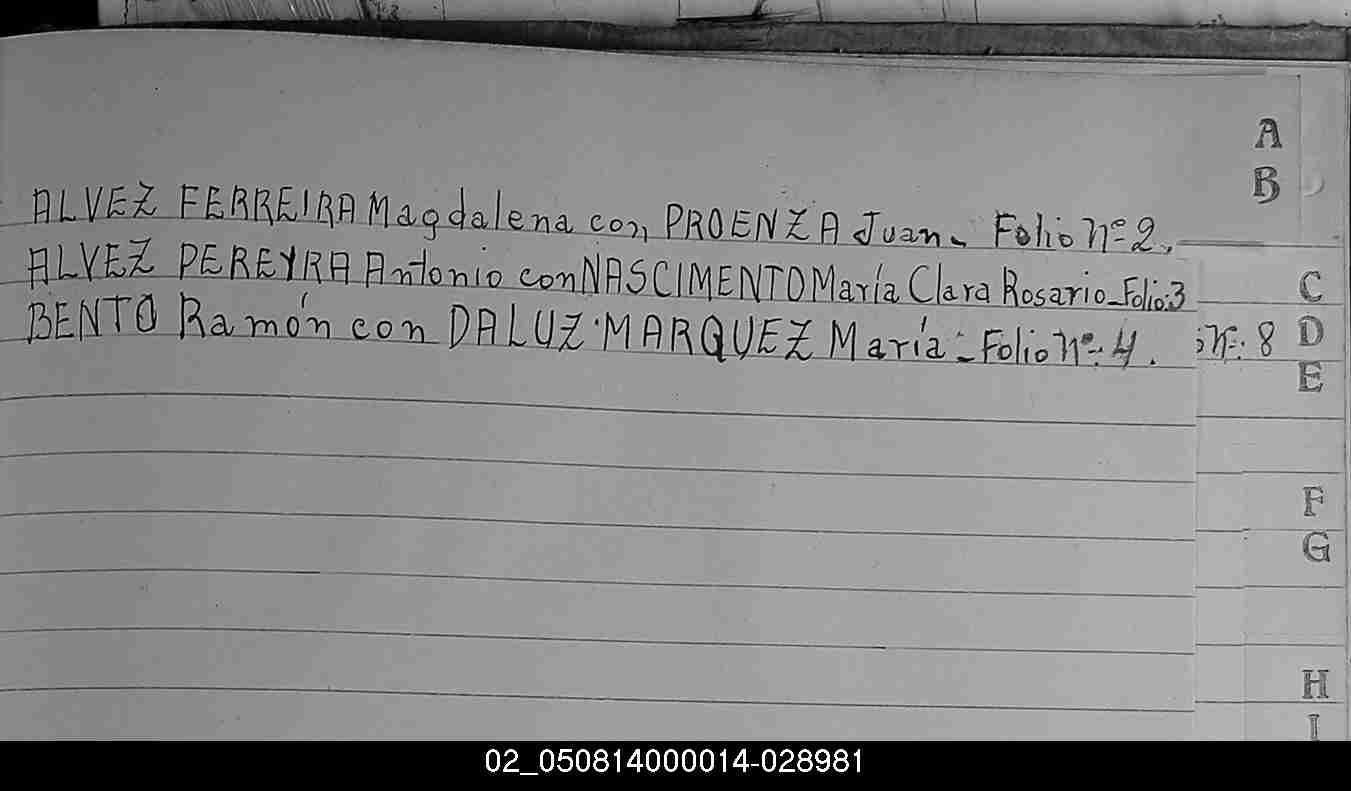 A
B
ALVEZ FERREIRA Magdalena con PROENZA Juan- Folio nº 2.
ALVEZ PEREYRA Antonio con NASCIMENTO María Clara Rosario-Folio:3
C
BENTO Ramón con DALUZ·MARQUEZ María-Folio nº 4.
nº: 8
D
E
F
G
H
I
02_050814000014-028981